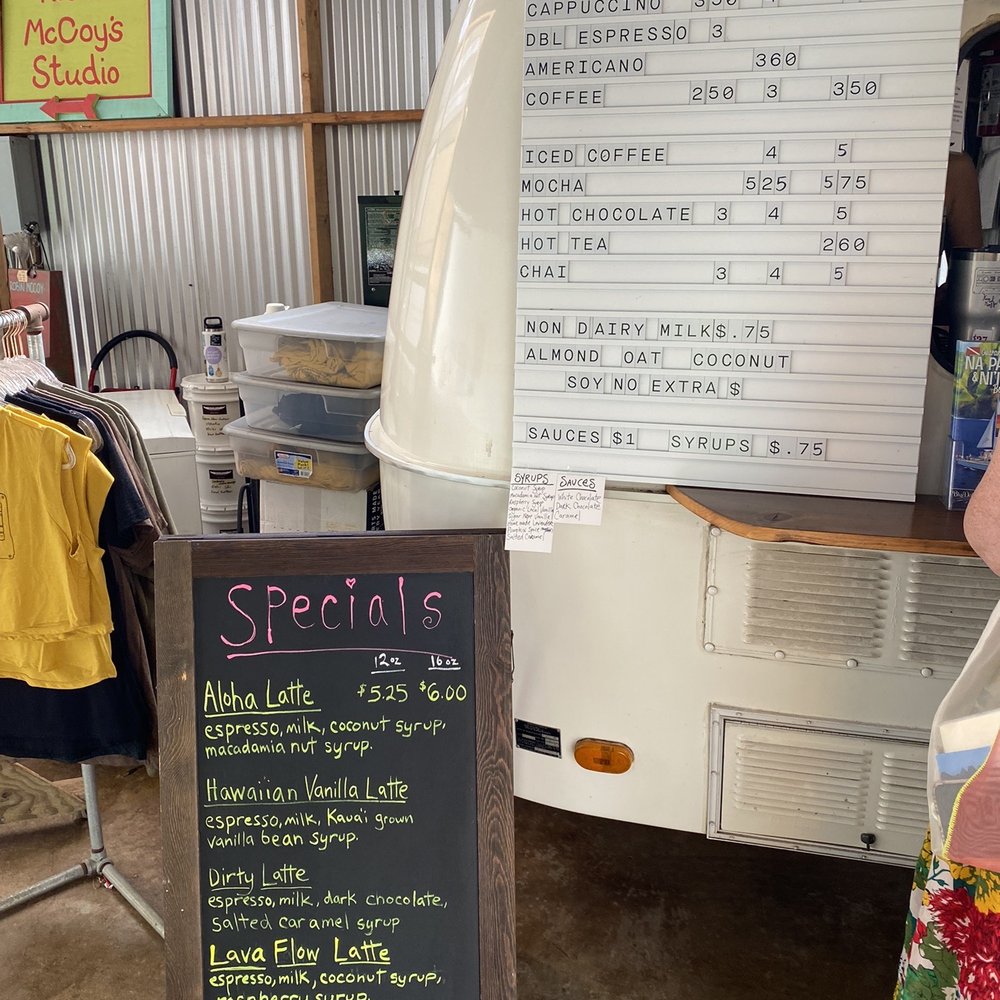 McCoy's
Studio
CAPPUCCINO 350
DBL ESPRESSO 3
AMERICANO 360
COFFEE 250 3 350
ICED COFFEE 4 5
MOCHA 525 575
HOT CHOCOLATE 3 4 5
HOT TEA 260
CHAI 3 4 5
NON DAIRY MILK $.75
ALMOND OAT COCONUT
SOY NO EXTRA $
SAUCES $1 SYRUPS $.75
SYRUPS
Coconut Syrup
Macadamia Nut Syrup
Raspberry Syrup
Organic Local Vanilla
Sugar Free Vanilla
Pumpkin Spice
Salted Caramel
SAUCES
White Chocolate
Dark Chocolate
Caramel
Specials
12oz 16oz
Aloha Latte $5.25 $6.00
espresso, milk, coconut syrup,
macadamia nut syrup.
Hawaiian Vanilla Latte
espresso, milk, Kaua'i grown
vanilla bean syrup.
Dirty Latte
espresso, milk, dark chocolate,
salted caramel syrup
Lava Flow Latte
espresso, milk, coconut syrup,
raspberry syrup
NA PA
& NI